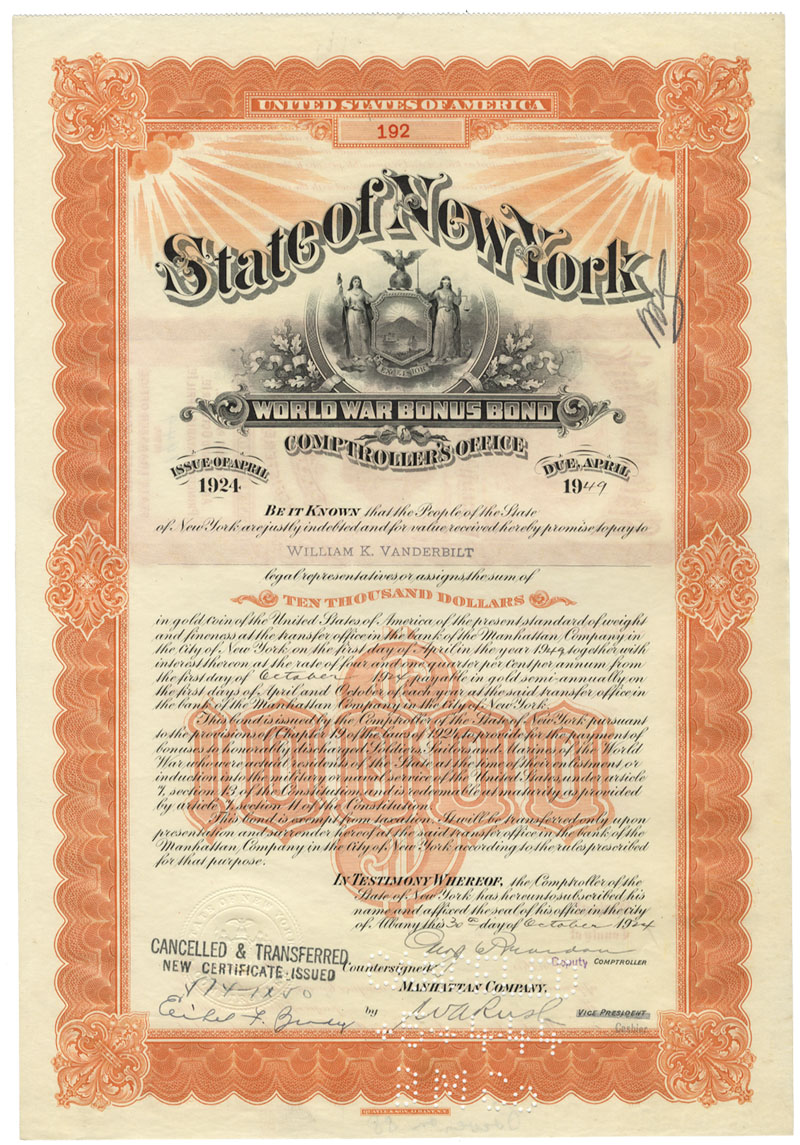 UNITED STATES OF AMERICA
192
State of New York
EXCELSIOR
WORLD WAR BONUS BOND
COMPTROLLER'S OFFICE
ISSUE OF APRIL
1924
DUE, APRIL
1949
BE IT KNOWN that the People of the State
of New York are justly indebted and for value received hereby promise to pay to
WILLIAM K. VANDERBILT
legal representatives or assigns the sum of
TEN THOUSAND DOLLARS
in gold coin of the United States of America of the present standard of weight
and fineness at the transfer office in the Bank of the Manhattan Company in
the City of New York on the first day of April in the year 1949 together with
interest thereon at the rate of four and one quarter per cent per annum from
the first day of October 1924 payable in gold semi-annually on
the first days of April and October of each year at the said transfer office in
the bank of the Manhattan Company in the City of New York.
This bond is issued by the Comptroller of the State of New York pursuant
to the provisions of Chapter 19 of the laws 1924, to provide for the payment of
bonuses to honorably discharged Soldiers, Sailors and Marines of the World
War, who were actual residents of the State at the time of their enlistment or
induction into the military or naval service of the United States under article
7, section 13 of the Constitution and is redeemable at maturity as provided
by article 7, section 11 of the Constitution.
This bond is exempt from taxation. It will be transferred only upon
presentation and surrender hereof at the said transfer office in the bank of the
Manhattan Company in the City of New York according to the rules prescribed
for that purpose.
$10000
IN TESTIMONY WHEREOF, the Comptroller of the
State of New York has hereunto subscribed his
name and affixed the seal of his office in the city
of Albany this 30th day of October 1924
Deputy COMPTROLLER
CANCELLED & TRANSFERRED
NEW CERTIFICATE ISSUED
Countersigned
MANHATTAN COMPANY.
by W A Rush
VICE PRESIDENT
Cashier